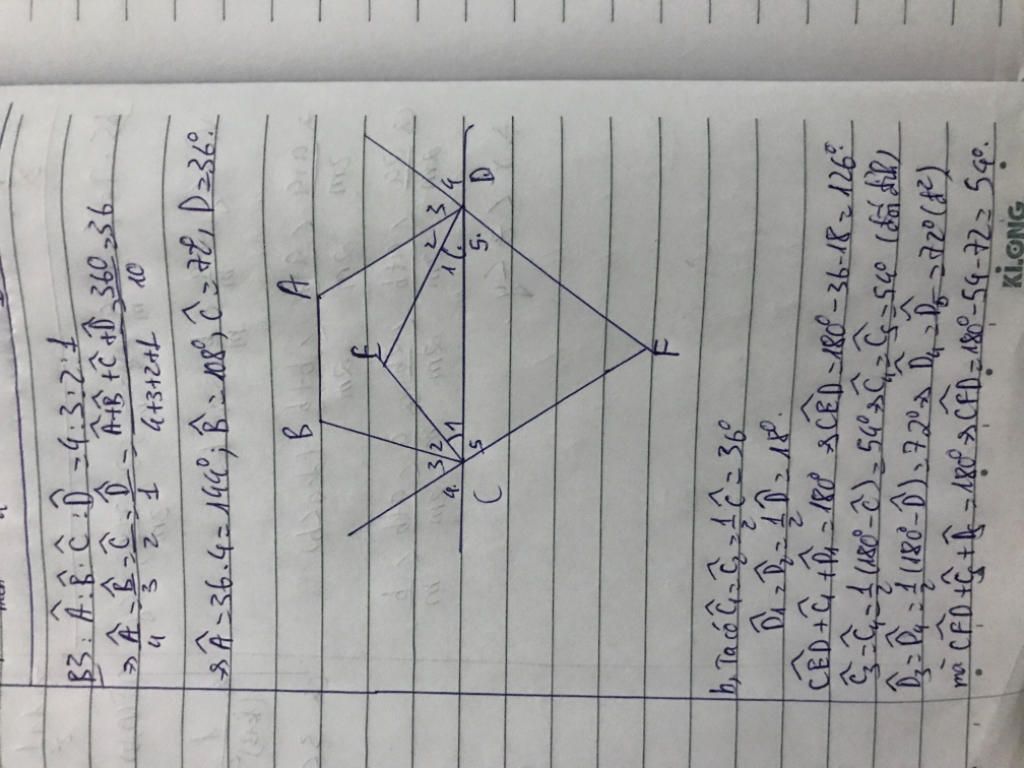 B3: Â:B̂:Ĉ:D̂=4:3:2:1
⇒ Â/4=B̂/3=Ĉ/2=D̂/1=(Â+B̂+Ĉ+D̂)/(4+3+2+1)=360/10=36
⇒ Â=36.4=144°; B̂=108°, Ĉ=72°, D̂=36°.
B A
E
3 2 1 1 2 3
4 5 5 4
C D
F
b, Ta có Ĉ1=Ĉ2=1/2Ĉ=36°
D̂1=D̂2=1/2D̂=18°.
CÊD+Ĉ1+D̂1=180° ⇒ CÊD=180°-36-18=126°.
Ĉ3=Ĉ4=1/2(180°-Ĉ)=54° ⇒ Ĉ4=Ĉ5=54° (đối đỉnh)
D̂3=D̂4=1/2(180°-D̂)=72° ⇒ D̂4=D̂5=72° (t²)
mà CF̂D+Ĉ5+D̂5=180° ⇒ CF̂D=180°-54-72=54°.
KiLONG